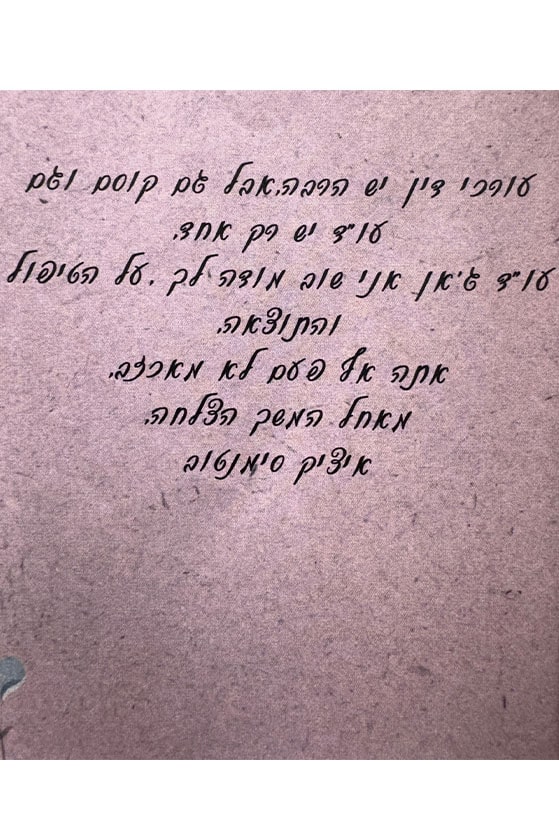 עורכי דין יש הרבה,אבל גם קוסם וגם
עו"ד יש רק אחד.
עו"ד ג'אן אני שוב מודה לך .על הטיפול
והתוצאה.
אתה אף פעם לא מאכזב.
מאחל המשך הצלחה.
איציק סימנטוב